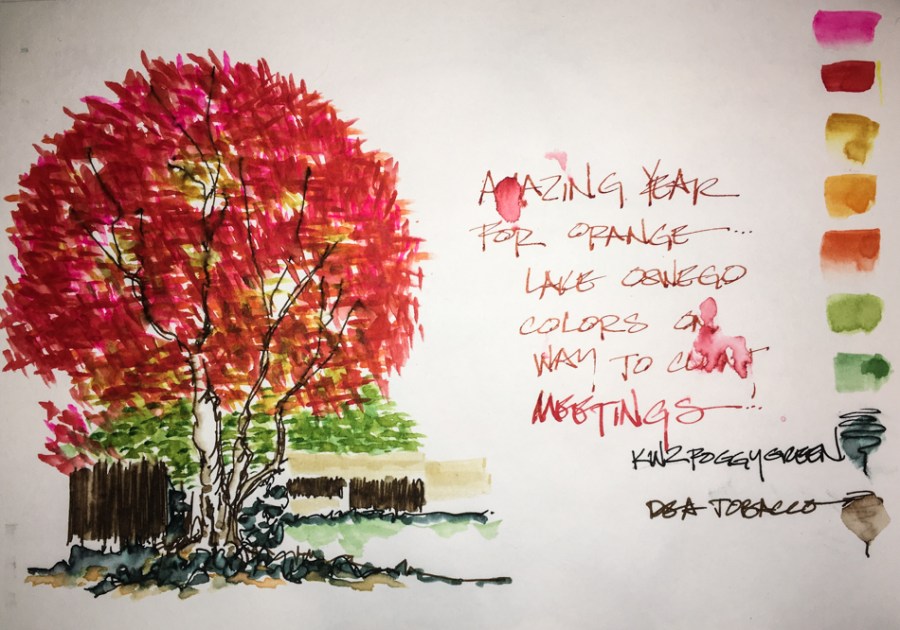 AMAZING YEAR
FOR ORANGE...
LAKE OSWEGO
COLORS ON
WAY TO CLIENT
MEETINGS...
KWZ FOGGY GREEN
D&A TOBACCO